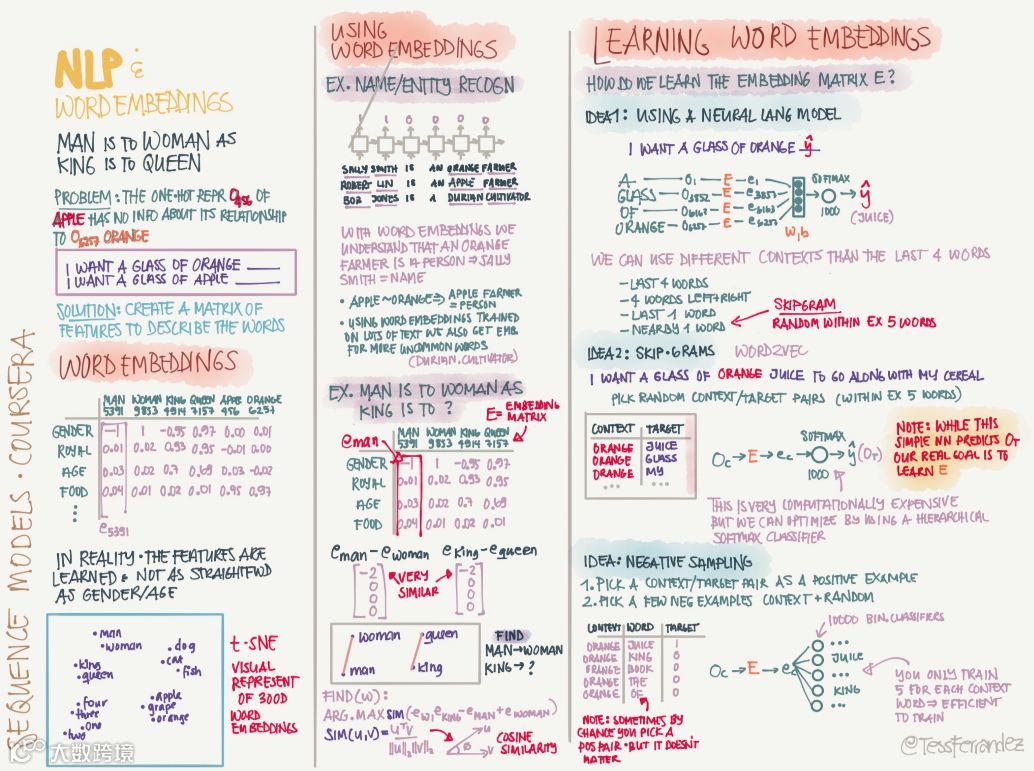 SEQUENCE MODELS · COURSERA
NLP &
WORD EMBEDDINGS
MAN IS TO WOMAN AS
KING IS TO QUEEN
PROBLEM: THE ONE-HOT REPR O456 OF
APPLE HAS NO INFO ABOUT ITS RELATIONSHIP
TO O6257 ORANGE
I WANT A GLASS OF ORANGE ____
I WANT A GLASS OF APPLE ____
SOLUTION: CREATE A MATRIX OF
FEATURES TO DESCRIBE THE WORDS
WORD EMBEDDINGS
MAN WOMAN KING QUEEN APPLE ORANGE
5391 9853 4914 7157 456 6257
GENDER -1 1 -0.95 0.97 0.00 0.01
ROYAL 0.01 0.02 0.93 0.95 -0.01 0.00
AGE 0.03 0.02 0.7 0.69 0.03 -0.02
FOOD 0.04 0.01 0.02 0.01 0.95 0.97
e5391
IN REALITY · THE FEATURES ARE
LEARNED & NOT AS STRAIGHTFWD
AS GENDER/AGE
man
woman
dog
cat
fish
king
queen
four
three
one
two
apple
grape
orange
t-SNE
VISUAL
REPRESENT
OF 300D
WORD
EMBEDDINGS
USING
WORD EMBEDDINGS
EX. NAME/ENTITY RECOGN
1 1 0 0 0 0
SALLY SMITH IS AN ORANGE FARMER
ROBERT LIN IS AN APPLE FARMER
BOB JONES IS A DURIAN CULTIVATOR
WITH WORD EMBEDDINGS WE
UNDERSTAND THAT AN ORANGE
FARMER IS A PERSON ⇒ SALLY
SMITH = NAME
• APPLE ~ ORANGE ⇒ APPLE FARMER
= PERSON
• USING WORD EMBEDDINGS TRAINED
ON LOTS OF TEXT WE ALSO GET EMB.
FOR MORE UNCOMMON WORDS
(DURIAN, CULTIVATOR)
EX. MAN IS TO WOMAN AS
KING IS TO ?
E = EMBEDDING
MATRIX
eman
MAN WOMAN KING QUEEN
5391 9853 4914 7157
GENDER -1 1 -0.95 0.97
ROYAL 0.01 0.02 0.93 0.95
AGE 0.03 0.02 0.7 0.69
FOOD 0.04 0.01 0.02 0.01
eman - ewoman eking - equeen
[-2 0 0 0] VERY SIMILAR [-2 0 0 0]
woman queen
man king
FIND
MAN → WOMAN
KING → ?
FIND(W):
ARG.MAX SIM(eW, eKING - eMAN + eWOMAN)
SIM(U,V) = UᵀV / ||U||₂||V||₂
u
v
ø
COSINE
SIMILARITY
LEARNING WORD EMBEDDINGS
HOW DO WE LEARN THE EMBEDDING MATRIX E?
IDEA1: USING A NEURAL LANG MODEL
I WANT A GLASS OF ORANGE ŷ
A O1 E e1
GLASS O3852 E e3852
OF O6163 E e6163
ORANGE O6257 E e6257
W,b
SOFTMAX
1000
ŷ
(JUICE)
WE CAN USE DIFFERENT CONTEXTS THAN THE LAST 4 WORDS
- LAST 4 WORDS
- 4 WORDS LEFT+RIGHT
- LAST 1 WORD
- NEARBY 1 WORD
SKIPGRAM
RANDOM WITHIN EX 5 WORDS
IDEA2: SKIP-GRAMS WORD2VEC
I WANT A GLASS OF ORANGE JUICE TO GO ALONG WITH MY CEREAL
PICK RANDOM CONTEXT/TARGET PAIRS (WITHIN EX 5 WORDS)
CONTEXT TARGET
ORANGE JUICE
ORANGE GLASS
ORANGE MY
... ...
Oc → E → ec → ŷ (OT)
SOFTMAX
1000
NOTE: WHILE THIS
SIMPLE NN PREDICTS OT
OUR REAL GOAL IS TO
LEARN E
THIS IS VERY COMPUTATIONALLY EXPENSIVE
BUT WE CAN OPTIMIZE BY USING A HIERARCHICAL
SOFTMAX CLASSIFIER
IDEA: NEGATIVE SAMPLING
1. PICK A CONTEXT/TARGET PAIR AS A POSITIVE EXAMPLE
2. PICK A FEW NEG EXAMPLES CONTEXT + RANDOM
CONTEXT WORD TARGET
ORANGE JUICE 1
ORANGE KING 0
ORANGE BOOK 0
ORANGE THE 0
ORANGE OF 0
NOTE: SOMETIMES BY
CHANCE YOU PICK A
POS PAIR · BUT IT DOESN'T
MATTER
Oc → E → ec
10000 BIN. CLASSIFIERS
...
JUICE
...
KING
YOU ONLY TRAIN
5 FOR EACH CONTEXT
WORD ⇒ EFFICIENT
TO TRAIN
@TessFerrandez
大数跨境